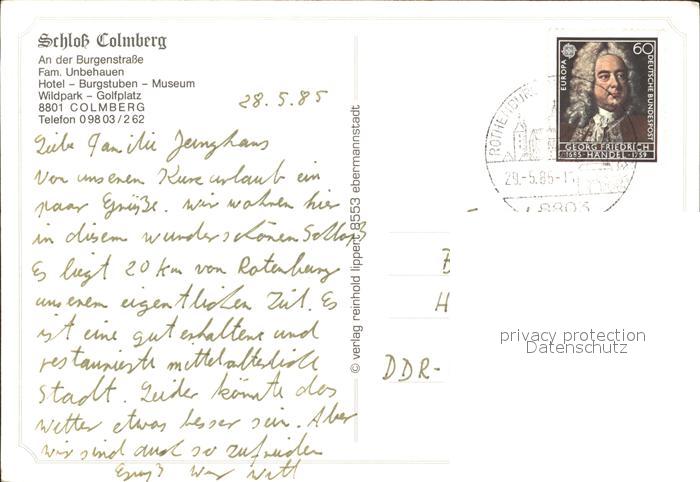 Schloß Colmberg
An der Burgenstraße
Fam. Unbehauen
Hotel – Burgstuben – Museum
Wildpark – Golfplatz
8801 COLMBERG
Telefon 0 98 03 / 2 62
28.5.85
Liebe Familie Junghans
Von unserem Kurzurlaub ein
paar Grüße. Wir wohnen hier
in disem wunderschönen Schloß
Es liegt 20 km von Rotenburg
unserem eigentlichen Ziel. Es
ist eine guterhaltene und
restaurierte mittelalterliche
Stadt. Leider könnte das
Wetter etwas besser sein. Aber
wir sind auch so zufrieden
Gruß
© verlag reinhold lippert, 8553 ebermannstadt
EUROPA
60
DEUTSCHE BUNDESPOST
GEORG FRIEDRICH
1685 HÄNDEL 1759
ROTHENBURG
29.-5.85-
8803
DDR-
privacy protection
Datenschutz